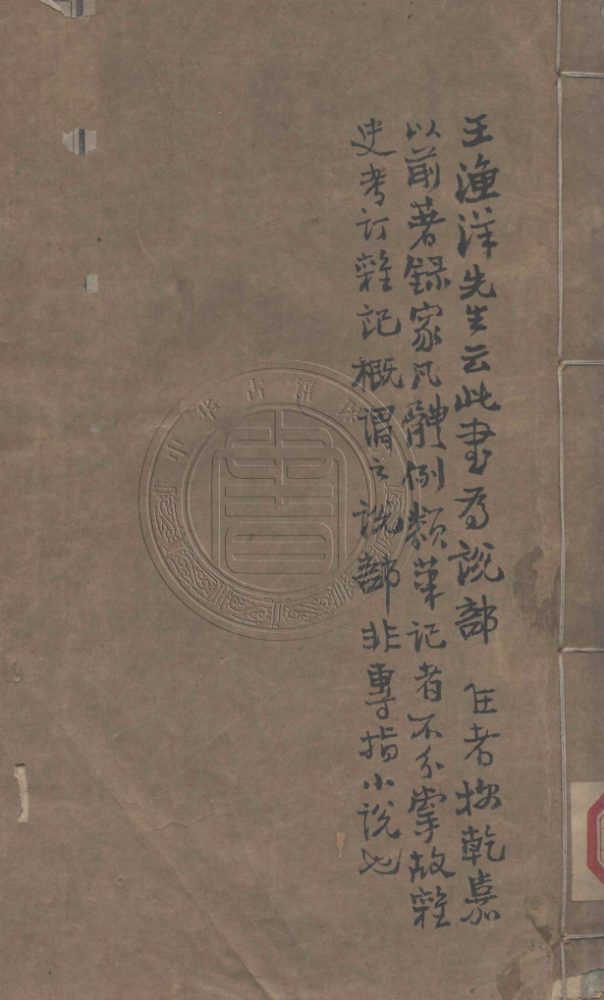 王漁洋先生云此書為說部 任者按乾嘉
以前著録家凡體例類筆記者不分掌故雜
史考訂雜記概謂之說部非專指小說也
中华古籍